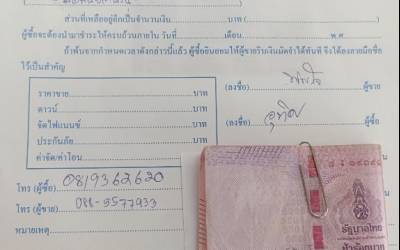 ส่วนที่เหลืออยู่อีกเป็นจำนวนเงิน บาท (
ผู้ซื้อจะต้องนำมาชำระให้ครบถ้วนภายใน วันที่ เดือน พ.ศ.
ถ้าพ้นจากกำหนดเวลาดังกล่าวนี้แล้ว ผู้ซื้อยินยอมให้ผู้ขายริบเงินมัดจำได้ทันที จึงได้ลงลายมือชื่อ
ไว้เป็นสำคัญ
ราคาขาย บาท
(ลงชื่อ) ผู้ขาย
ดาวน์ บาท
จัดไฟแนนซ์ บาท
(ลงชื่อ) ผู้ซื้อ
ประกันภัย บาท
ค่าจัด/ค่าโอน
โทร (ผู้ซื้อ) 0819362620
โทร (ผู้ขาย) 088-5577933
หมายเหตุ
รัฐบาลไทย